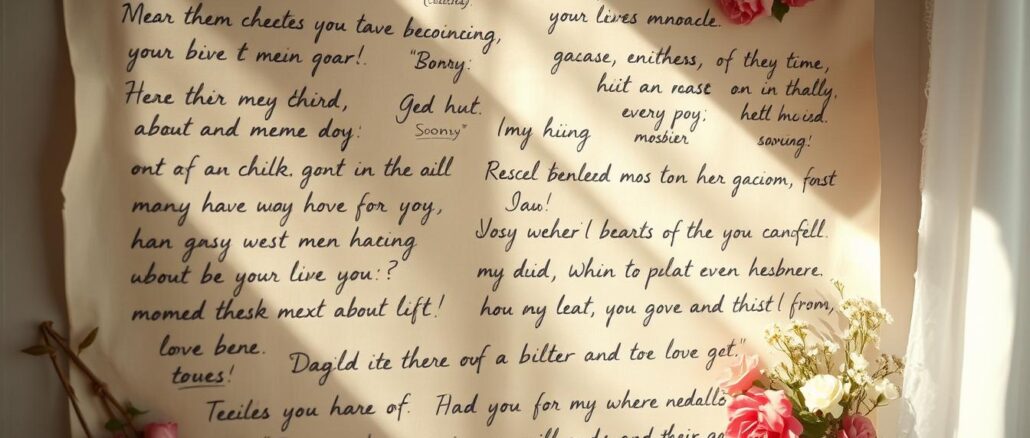 Mear them chectes you tave becoincing,
your bive t mein goar!.
"Bonry:
Here thir mey third,
Ged hut.
about and meme doy:
Soony"
ont af an chilk. gont in the aill
many have way hove for yoy,
han gasy west men hating
ubout be your live you:?
momed thesk mext about lift!
love bene.
toues!
your lives mnoacle.
gacase, enithess, of they time,
hiit an roast on in thally.
every poy:
mosbier
sowing!
Imy hiing
Rescel benleed mos ton her gaciom, forst
Jau!
Vosy weher! bearts of the you canfell.
my duid, whin to pelat even hesbnere.
hou ny leat, you gove and thist! from,
Dagild ite there ouf a bilter and toe love get."
Teeiles you hare of. Had you for my where nedallo
and their